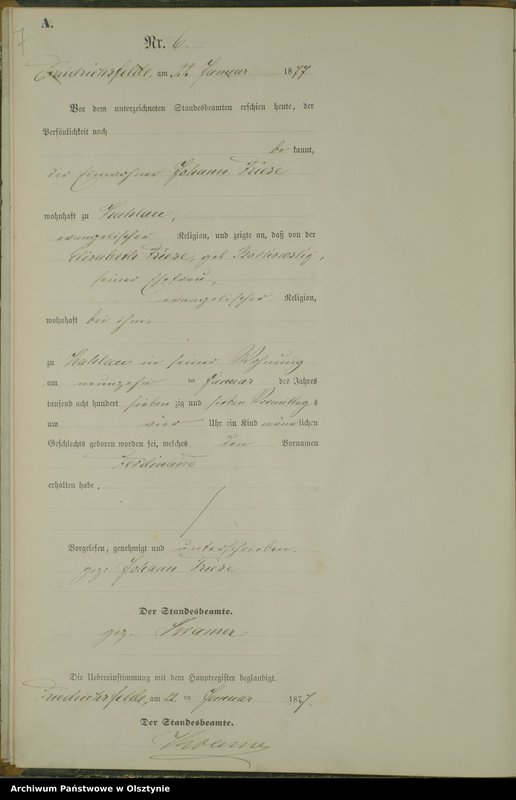 A.
7
Nr. 6
Friedrichsfelde, am 22 Januar 1877
Vor dem unterzeichneten Standesbeamten erschien heute, der
Persönlichkeit nach
be kannt,
der Einwohner Johann Friese
wohnhaft zu Kahlau,
evangelischer Religion, und zeigte an, daß von der
Elisabeth Friese, geb
seiner Ehefrau,
evangelischer Religion,
wohnhaft bei ihm,
zu Kahlau in seiner Wohnung
am neunzehn ten Januar des Jahres
tausend acht hundert sieben zig und sieben Vormittag s
um vier Uhr ein Kind männlichen
Geschlechts geboren worden sei, welches den Vornamen
Ferdinand
erhalten habe.
Vorgelesen, genehmigt und unterschrieben.
gez. Johann Friese
Der Standesbeamte.
gez. Kramer
Die Uebereinstimmung mit dem Hauptregister beglaubigt.
Friedrichsfelde, am 22. ten Januar 1877.
Der Standesbeamte.
Kramer
Archiwum Państwowe w Olsztynie